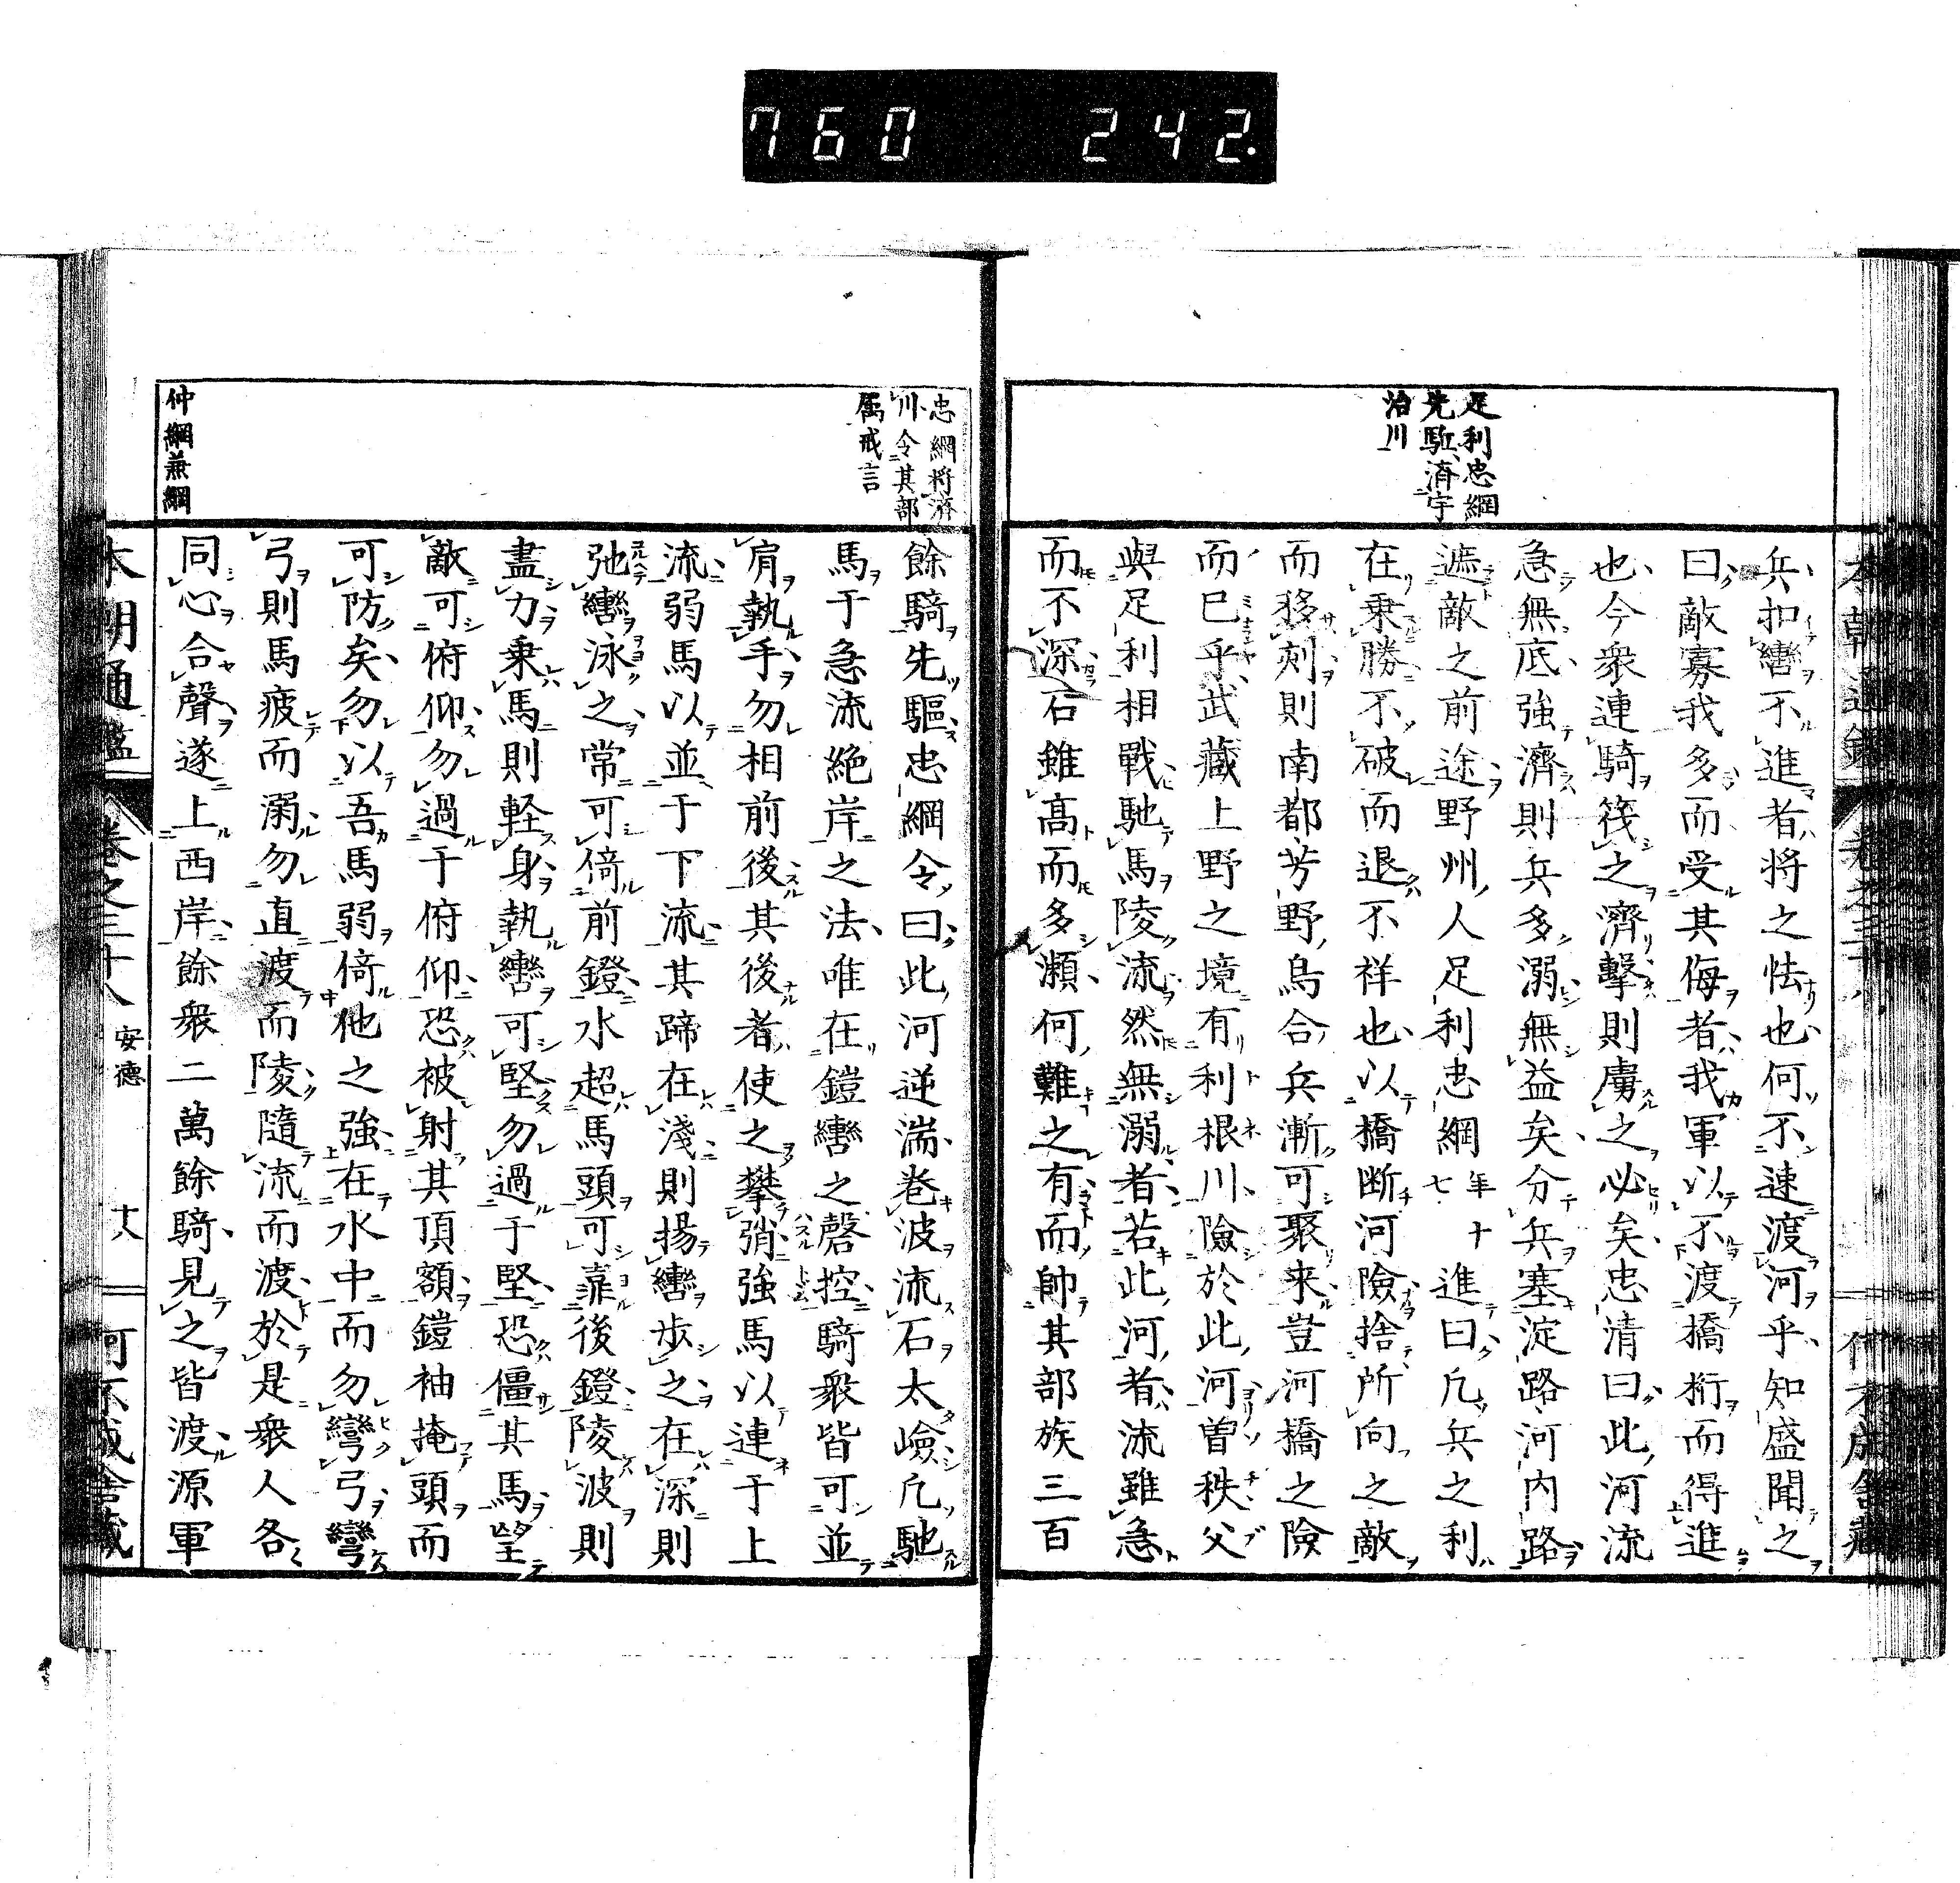 760 242.
足利忠綱
先駈済宇
治川
兵扣轡不進者将之怯也何不速渡河乎知盛聞之
曰敵寡我多而受其侮者我軍以不渡橋桁而得進
也今衆連騎筏之濟擊則虜之必矣忠清曰此河流
急無底強濟則兵多溺無益矣分兵塞淀路河内路
遮敵之前途野州人足利忠綱年十七進曰凡兵之利
在乗勝不破而退不祥也以橋断河險捨所向之敵
而移刻則南都芳野烏合兵漸可聚来豈河橋之險
而已乎武藏上野之境有利根川險於此河曽秩父
與足利相戰馳馬陵流然無溺者若此河者流雖急
而不深石雖髙而多瀬何難之有而帥其部族三百
忠綱将済
川令其部
属戒言
仲綱兼綱
餘騎先驅忠綱令曰此河逆湍卷波流石太嶮凡馳
馬于急流絶岸之法唯在鎧轡之磬控騎衆皆可並
肩執手勿相前後其後者使之攀弰強馬以連于上
流弱馬以並于下流其蹄在淺則揚轡歩之在深則
弛轡泳之常可倚前鐙水超馬頭可靠後鐙陵波則
盡力乗馬則軽身執轡可堅勿過于堅恐僵其馬望
敵可俯仰勿過于俯仰恐被射其頂額鎧袖掩頭而
可防矣勿以吾馬弱倚他之強在水中而勿彎弓彎
弓則馬疲而溺勿直渡而陵隨流而渡於是衆人各
同心合聲遂上西岸餘衆二萬餘騎見之皆渡源軍
本朝通鑑 卷之三十八 安德 十八